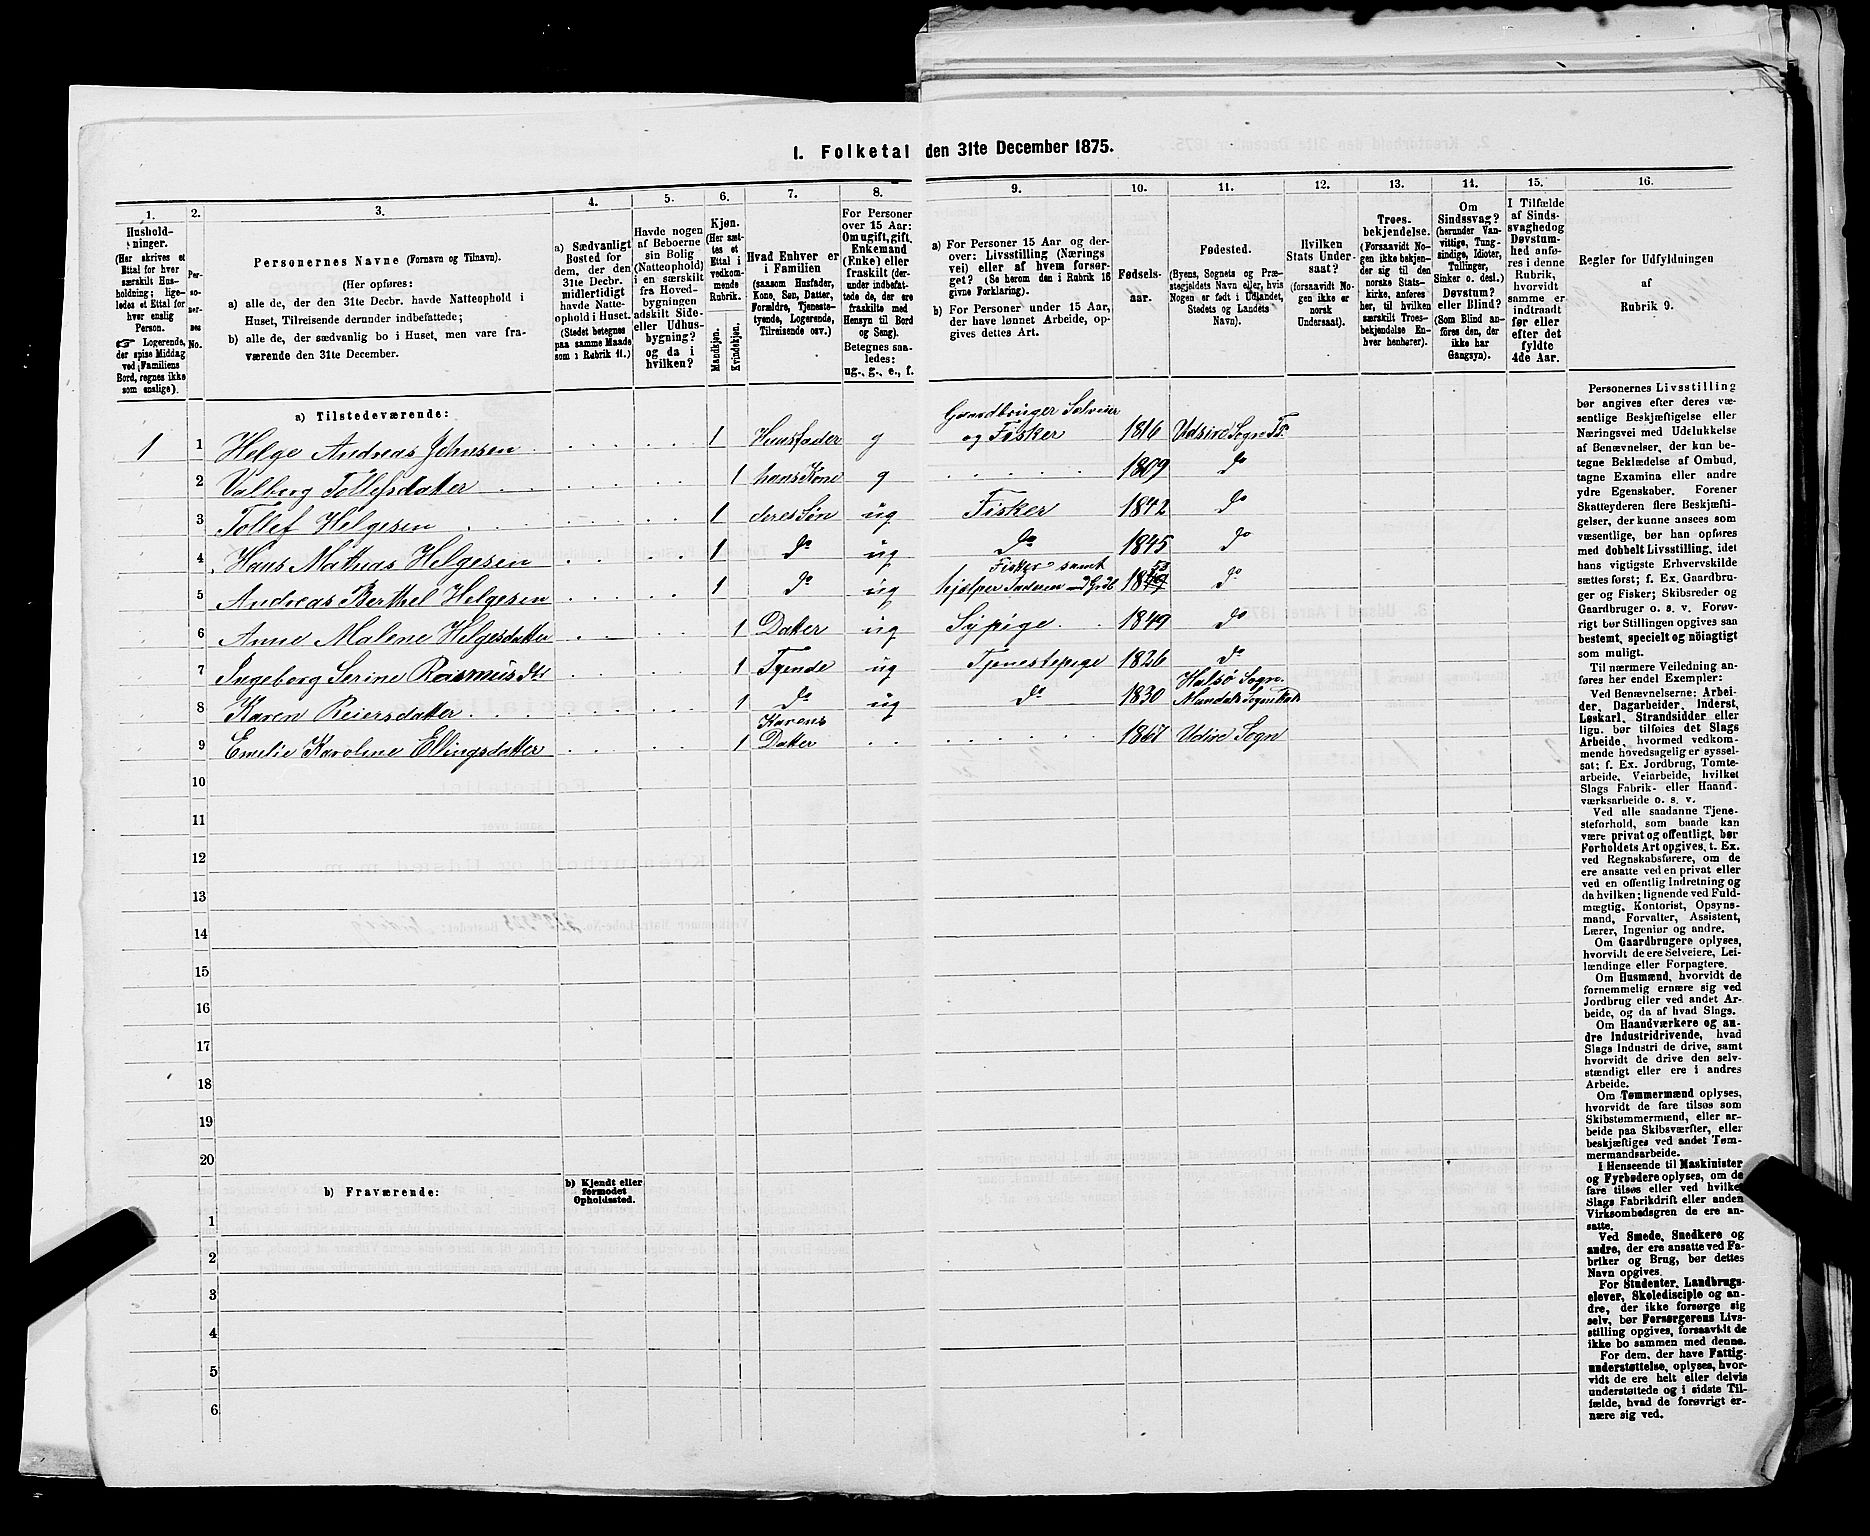 1. Folketal den 31te December 1875.
1.
2.
3.
4.
5.
6.
7.
8.
9.
10.
11.
12.
13.
14.
15.
16.
Hushold-
ninger.
(Her skrives et
Ettal for hver
særskilt Hus-
holdning; lige-
ledes et Ettal for
hver enslig
Person.
☞ Logerende,
der spise Middag
ved Familiens
Bord, regnes ikke
som enslige).
Per-
so-
ner-
nes
No.
Personernes Navne (Fornavn og Tilnavn).
(Her opføres:
a) alle de, der den 31te Decbr. havde Natteophold i
Huset, Tilreisende derunder indbefattede;
b) alle de, der sædvanlig bo i Huset, men vare fra-
værende den 31te December.
a) Sædvanligt
Bosted for
dem, der den
31te Decbr.
midlertidigt
havde Natte-
ophold i Huset.
(Stedet betegnes
paa samme Maade
som i Rubrik 11.)
Havde nogen
af Beboerne
sin Bolig
(Natteophold)
i en særskilt
fra Hoved-
bygningen
adskilt Side-
eller Udhus-
bygning?
og da i
hvilken?
Kjøn.
(Her sæt-
tes et
Ettal i
vedkom-
mende
Rubrik.
Mandkjøn.
Kvindekjøn.
Hvad Enhver er
i Familien
(saasom Husfader,
Kone, Søn, Datter,
Forældre, Tjeneste-
tyende, Logerende,
Tilreisende osv.)
For Personer
over 15 Aar:
Om ugift, gift,
Enkemand
(Enke) eller
fraskilt (der-
under indbefat-
tede de, der ere
fraskilte med
Hensyn til Bord
og Seng).
Betegnes saa-
ledes:
ug., g., e., f.
a) For Personer 15 Aar og der-
over: Livsstilling (Nærings
vei) eller af hvem forsør-
get? (Se herom den i Rubrik 16
givne Forklaring).
b) For Personer under 15 Aar,
der have lønnet Arbeide, op-
gives dettes Art.
Fødsels-
aar.
Fødested.
(Byens, Sognets og Præ-
stegjeldets Navn eller, hvis
Nogen er født i Udlandet,
Stedets og Landets
Navn).
Hvilken
Stats Under-
saat?
(forsaavidt No-
gen ikke er
norsk
Undersaat).
Troes-
bekjendelse.
(Forsaavidt No-
gen ikke bekjen-
der sig til den
norske Stats-
kirke, anføres
her, til hvilken
særskilt Troes-
bekjendelse En-
hver henhører).
Om
Sindssvag?
(herunder Van-
vittige, Tung-
sindige, Idioter,
Tullinger,
Sinker o. desl.)
Døvstum?
eller Blind?
(Som Blind an-
føres den, der
ikke har
Gangsyn).
I Tilfælde
af Sinds-
svaghed og
Døvstum-
hed anfø-
res i denne
Rubrik,
hvorvidt
samme er
indtraadt
før eller
efter det
fyldte
4de Aar.
Regler for Udfyldningen
af
Rubrik 9.
a) Tilstedeværende:
1 1 Helge Andreas Johnsen 1 Huusfader g Gaardbruger Selveier og Fisker 1816 Udsire Sogn Ts.
2 Valborg Tollefsdatter 1 hans Kone g 1809 do
3 Tollef Helgesen 1 deres Søn ug Fisker 1842 do
4 Hans Mathias Helgesen 1 do ug do 1845 do
5 Andreas Berthel Helgesen 1 do ug Fisker samt hjælper Faderen 18 do
6 Anne Malene Helgesdatter 1 Datter ug Sypige 1849 do
7 Ingeborg Serine Rasmusdtr 1 Tyende ug Tjenestepige 1826 do
8 Karen Reiersdatter 1 do ug do 1830 Halsø Sogn. Mandals
9 Emilie Karoline Ellingsdatter 1 Karens Datter 1867 Udire Sogn
10
11
12
13
14
15
16
17
18
19
20
b) Fraværende:
b) Kjendt eller
formodet
Opholdssted.
1
2
3
4
5
6
Personernes Livsstilling
bør angives efter deres væ-
sentlige Beskjæftigelse eller
Næringsvei med Udelukkelse
af Benævnelser, der kun be-
tegne Beklædelse af Ombud,
tagne Examina eller andre
ydre Egenskaber. Forener
Skatteyderen flere Beskjæfti-
gelser, der kunne ansees som
væsentlige, bør han opføres
med dobbelt Livsstilling, idet
hans vigtigste Erhvervskilde
sættes først; f. Ex. Gaardbru-
ger og Fisker; Skibsreder og
Gaardbruger o. s. v. Forøv-
rigt bør Stillingen opgives saa
bestemt, specielt og nöiagtigt
som muligt.
Til nærmere Veiledning an-
føres her endel Exempler:
Ved Benævnelserne: Arbei-
der, Dagarbeider, Inderst,
Løskarl, Strandsidder eller
lign. bør tilføies det Slags
Arbeide, hvormed vedkom-
mende hovedsagelig er syssel-
sat; f. Ex. Jordbrug, Tomte-
arbeide, Veiarbeide, hvilket
Slags Fabrik- eller Haand-
værksarbeide o. s. v.
Ved alle saadanne Tjene-
steforhold, som baade kan
være privat og offentligt, bør
Forholdets Art opgives, t. Ex.
ved Regnskabsførere, om de
ere ansatte ved en privat eller
ved en offentlig Indretning og
da hvilken; lignende ved Fuld-
mægtig, Kontorist, Opsyns-
mand, Forvalter, Assistent,
Lærer, Ingeniør og andre.
Om Gaardbrugere oplyses,
hvorvidt de ere Selveiere, Lei-
lændinge eller Forpagtere.
Om Husmænd, hvorvidt de
fornemmelig ernære sig ved
Jordbrug eller ved andet Ar-
beide, og da af hvad Slags.
Om Haandværkere og an-
dre Industridrivende, hvad
Slags Industri de drive, samt
hvorvidt de drive den selv-
stændigt eller ere i andres
Arbeide.
Om Tømmermænd oplyses,
hvorvidt de fare tilsøs som
Skibstømmermænd, eller ar-
beide paa Skibsværfter, eller
beskjæftiges ved andet Tøm-
mermandsarbeide.
I Henseende til Maskinister
og Fyrbødere oplyses, om de
fare tilsøs eller ved hvilket
Slags Fabrikdrift eller anden
Virksombedsgren de ere an-
satte.
Ved Smede, Snedkere og
andre, der ere ansatte ved Fa-
briker og Brug, bør dettes
Navn opgives.
For Studenter, Landbrugs-
elever, Skoledisciple og an-
dre, der ikke forsørge sig
selv, bør Forsørgerens Livs-
stilling opgives, forsaavidt de
ikke bo sammen med denne.
For dem, der have Fattig-
understøttelse, oplyses, hvor-
vidt de ere helt eller delvis
understøttede og i sidste Til-
fælde, hvad de forøvrigt er-
nære sig ved.